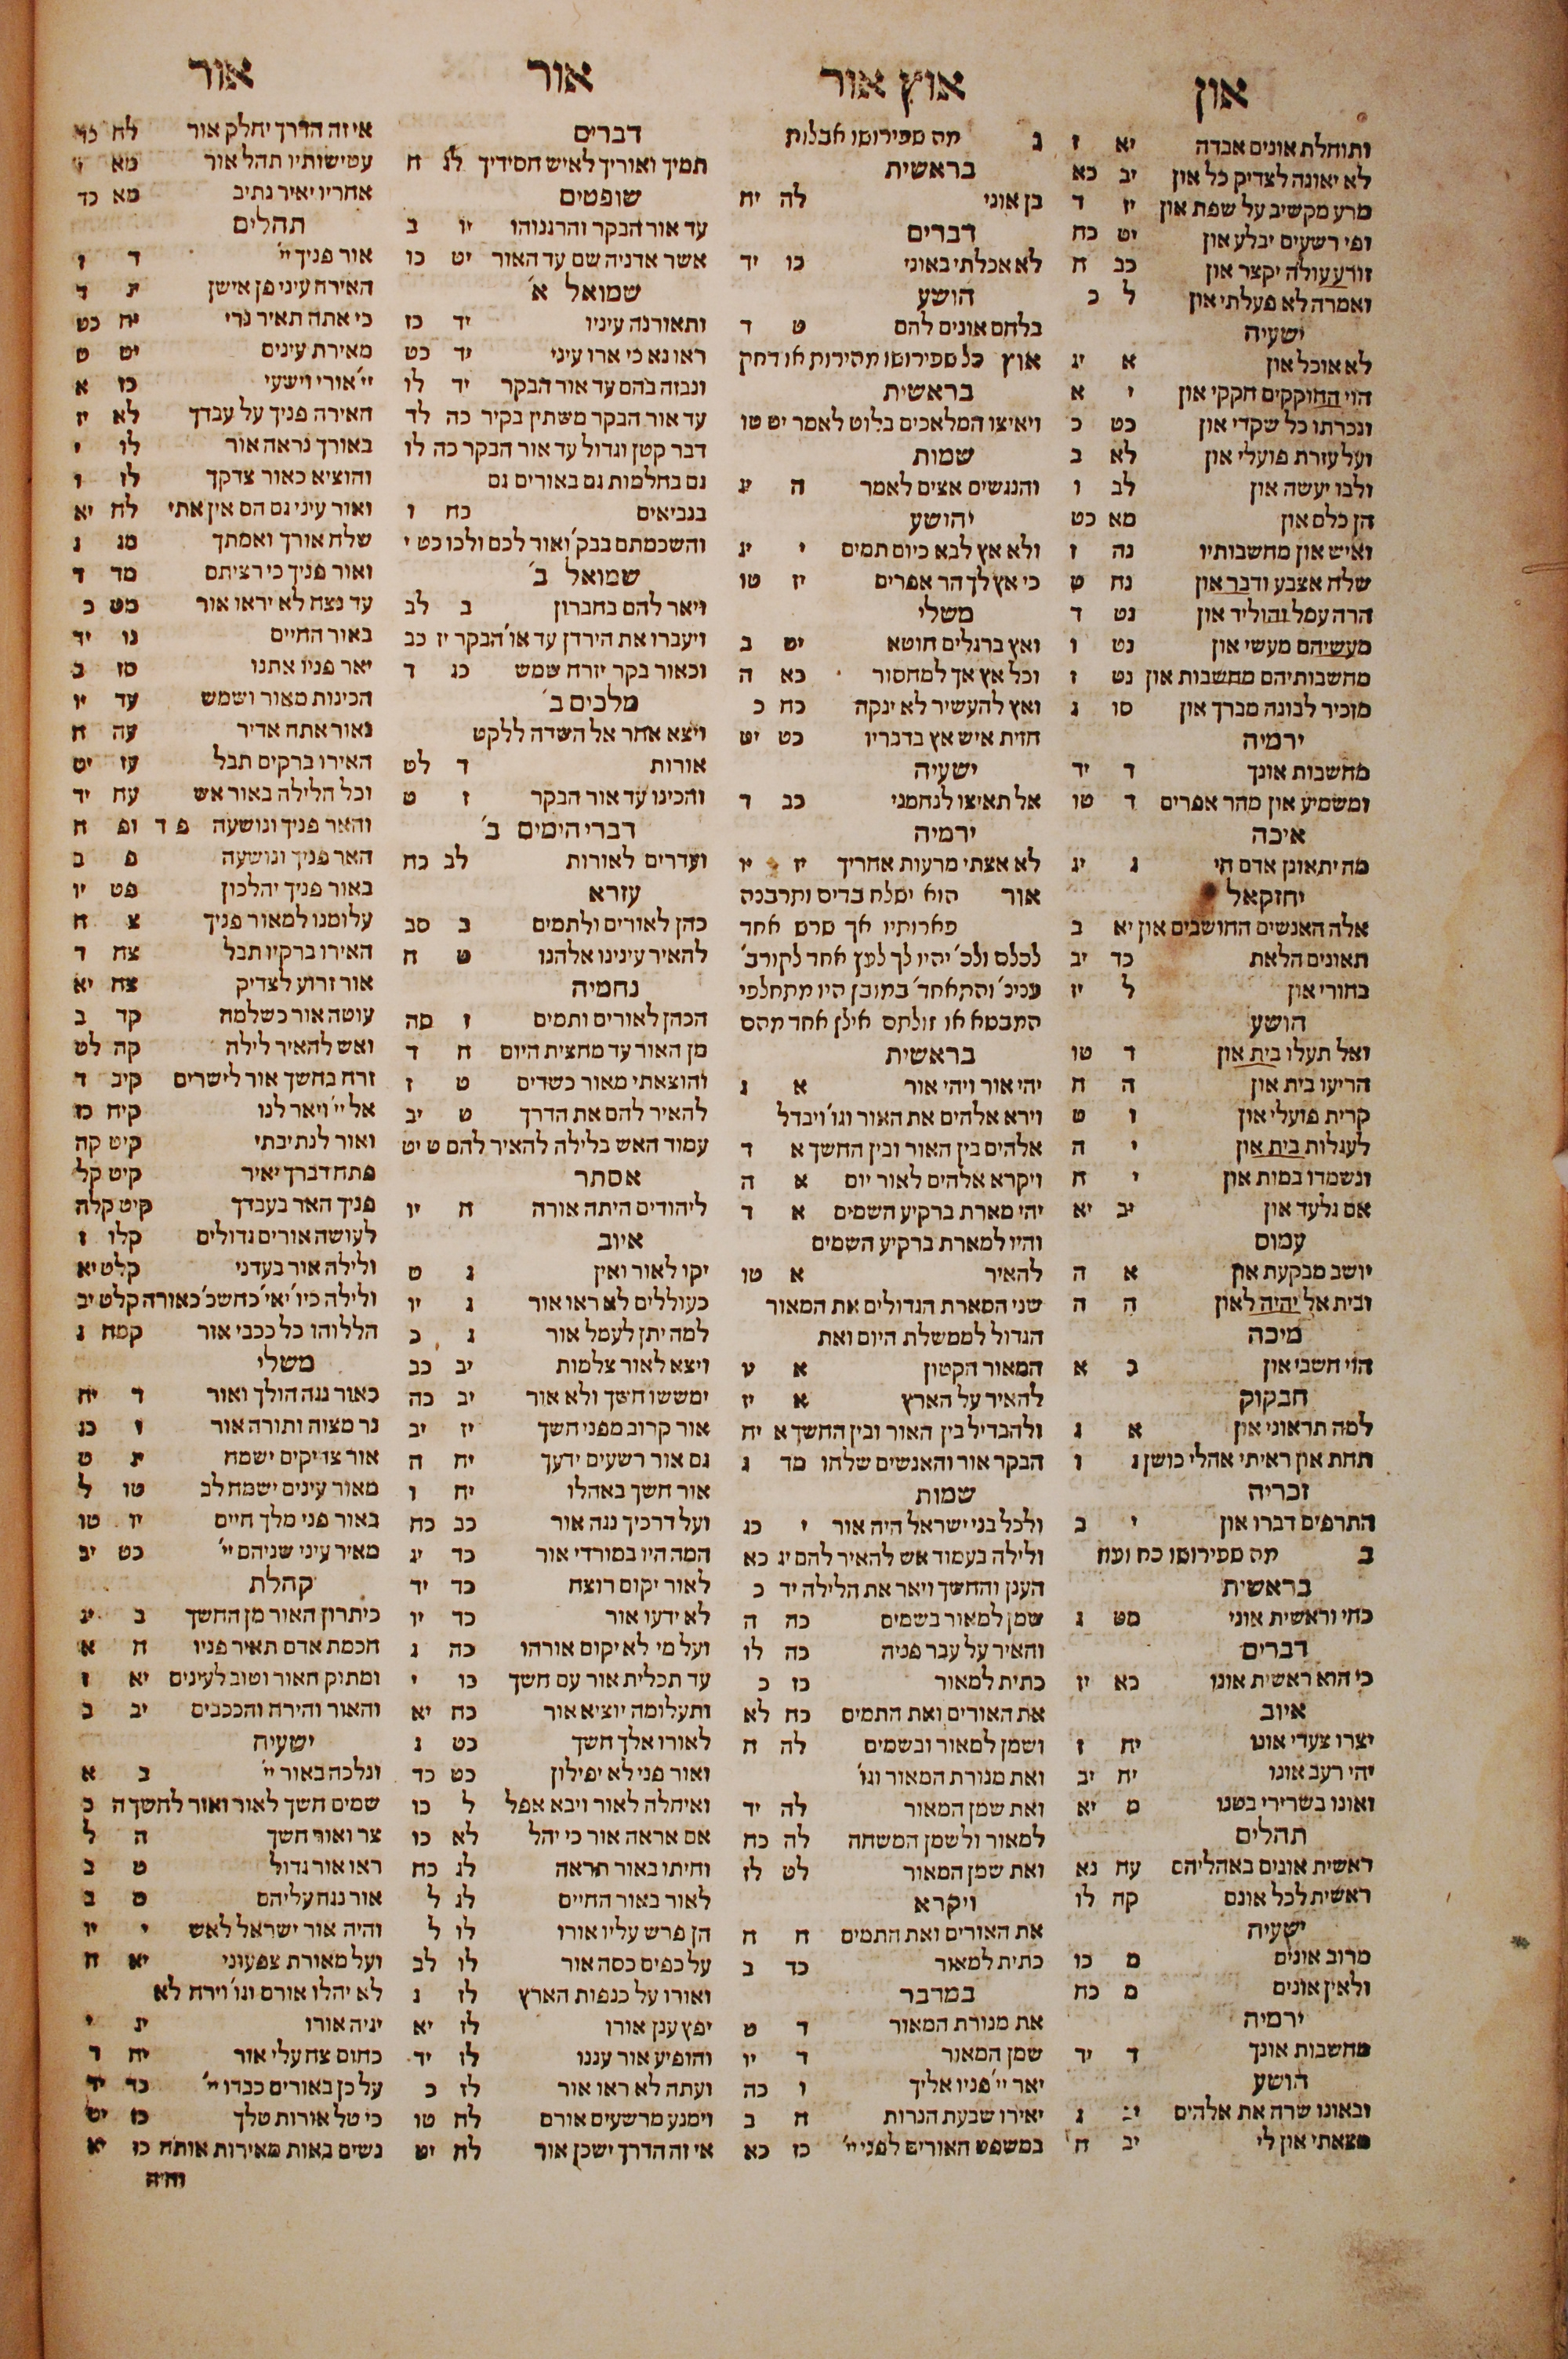 און
ותוחלת אונים אבדה יא ז
לא יאונה לצדיק כל און יב כא
מרע מקשיב על שפת און יז ד
ופי רשעים יבלע און יט כח
זורע עולה יקצר און כב ח
ואמרה לא פעלתי און ל כ
ישעיה
לא אוכל און א יג
הוי החוקקים חקקי און י א
ונכרתו כל שקדי און כט כ
ועל עזרת פועלי און לא ב
ולבו יעשה און לב ו
הן כלם און מא כט
ואיש און מחשבותיו נה ז
שלח אצבע ודבר און נח ט
הרה עמל והוליד און נט ד
מעשיהם מעשי און נט ו
מחשבותיהם מחשבות און נט ז
מזכיר לבונה מברך און סו ג
ירמיה
מחשבות אונך ד יד
ומשמיע און מהר אפרים ד טו
איכה
מה יתאונן אדם חי ג יג
יחזקאל
אלה האנשים החושבים און יא ב
תאונים הלאת כד יב
בחורי און ל יז
הושע
ואל תעלו בית און ד טו
הריעו בית און ה ח
קרית פועלי און ו ט
לעגלות בית און י ה
ונשמדו במות און י ח
אם גלעד און יב יא
עמוס
יושב מבקעת און א ה
ובית אל יהיה לאון ה ה
מיכה
הוי חשבי און ב א
חבקוק
למה תראוני און א ג
תחת און ראיתי אהלי כושן ג ו
זכריה
התרפים דברו און י ב
ב מה שפירושו כח ועוז
בראשית
כחי וראשית אוני מט ג
דברים
כי הוא ראשית אונו כא יז
איוב
יצרו צעדי אונו יח ז
יהי רעב אונו יח יב
ואונו בשרירי בטנו מ יא
תהלים
ראשית אונים באהליהם עח נא
ראשית לכל אונם קה לו
ישעיה
מרוב אונים מ כו
ולאין אונים מ כח
ירמיה
מחשבות אונך ד יד
הושע
ובאונו שרה את אלהים יב ג
מצאתי און לי יב ח
אוץ אור
ג מה שפירושו אבלות
בראשית
בן אוני לה יח
דברים
לא אכלתי באוני כו יד
הושע
בלחם אונים להם ט ד
אוץ כל שפירושו מהירות או דחק
בראשית
ויאיצו המלאכים בלוט לאמר יט טו
שמות
והנגשים אצים לאמר ה יג
יהושע
ולא אץ לבא כיום תמים י יג
כי אץ לך הר אפרים יז טו
משלי
ואץ ברגלים חוטא יט ב
וכל אץ אך למחסור כא ה
ואץ להעשיר לא ינקה כח כ
חזית איש אץ בדבריו כט יט
ישעיה
אל תאיצו לנחמני כב ד
ירמיה
לא אצתי מרעות אחריך יז יו
אור הוא ישלח בדים ותרבנה
פארותיו אך שרש אחד
לכלם ולכ׳ יהיו לך לעץ אחד לקורב׳
עניינ׳ והתאחד׳ במובן היו מתחלפי
המבטא או זולתם אילן אחד מהם
בראשית
יהי אור ויהי אור א ג
וירא אלהים את האור וגו׳ ויבדל
אלהים בין האור ובין החשך א ד
ויקרא אלהים לאור יום א ה
יהי מארת ברקיע השמים א ד
והיו למארת ברקיע השמים
להאיר א טו
שני המארת הגדולים את המאור
הגדול לממשלת היום ואת
המאור הקטון א ע
להאיר על הארץ א יז
ולהבדיל בין האור ובין החשך א יח
הבקר אור והאנשים שלחו מד ג
שמות
ולכל בני ישראל היה אור י כג
ולילה בעמוד אש להאיר להם יג כא
הענן והחשך ויאר את הלילה יד כ
שמן למאור בשמים כה ה
והאיר על עבר פניה כה לו
כתית למאור כז כ
את האורים ואת התמים כח לא
ושמן למאור ובשמים לה ח
ואת מנורת המאור וגו׳
ואת שמן המאור לה יד
למאור ולשמן המשחה לה כח
ואת שמן המאור לט לז
ויקרא
את האורים ואת התמים ח ח
כתית למאור כד ב
במדבר
את מנורת המאור ד ט
שמן המאור ד יו
יאר יי׳ פניו אליך ו כה
יאירו שבעת הנרות ח ב
במשפט האורים לפני יי׳ כז כא
אור
דברים
תמיך ואוריך לאיש חסידיך לג ח
שופטים
עד אור הבקר והרגנוהו יו ב
אשר אדניה שם עד האור יט כו
שמואל א׳
ותאורנה עיניו יד כז
ראו נא כי ארו עיני יד כט
ונבזה בהם עד אור הבקר יד לו
עד אור הבקר משתין בקיר כה לד
דבר קטן וגדול עד אור הבקר כה לו
גם בחלמות גם באורים גם
בנביאים כח ו
והשכמתם בבק׳ ואור לכם ולכו כט י
שמואל ב׳
ויאר להם בחברון ב לב
ויעברו את הירדן עד או׳ הבקר יז כב
וכאור בקר יזרח שמש כג ד
מלכים ב׳
ויצא אחר אל השדה ללקט
אורות ד לט
והכינו עד אור הבקר ז ט
דברי הימים ב׳
ועדרים לאורות לב כח
עזרא
כהן לאורים ולתמים ב סב
להאיר עינינו אלהנו ט ח
נחמיה
הכהן לאורים ותמים ז סה
מן האור עד מחצית היום ח ד
והוצאתי מאור כשדים ט ז
להאיר להם את הדרך ט יב
עמוד האש בלילה להאיר להם ט יט
אסתר
ליהודים היתה אורה ח יו
איוב
יקו לאור ואין ג ט
כעוללים לא ראו אור ג יו
למה יתן לעמל אור ג כ
ויצא לאור צלמות יב כב
ימששו חשך ולא אור יב כה
אור קרוב מפני חשך יז יב
גם אור רשעים ידעך יח ה
אור חשך באהלו יח ו
ועל דרכיך נגה אור כב כח
המה היו במורדי אור כד יג
לאור יקום רוצח כד יד
לא ידעו אור כד יו
ועל מי לא יקום אורהו כה ג
עד תכלית אור עם חשך כו י
ותעלומה יוציא אור כח יא
לאורו אלך חשך כט ג
ואור פני לא יפילון כט כד
ואיחלה לאור ויבא אפל ל כו
אם אראה אור כי יהל לא כו
וחיתו באור תראה לג כח
לאור באור החיים לג ל
הן פרש עליו אורו לו ל
על כפים כסה אור לו לב
ואורו על כנפות הארץ לז ג
יפץ ענן אורו לז יא
והופיע אור עננו לז יד
ועתה לא ראו אור לז כ
וימנע מרשעים אורם לח טו
אי זה הדרך ישכן אור לח יט
אור
אי זה הדרך יחלק אור לח כד
עטישותיו תהל אור מא
אחריו יאיר נתיב מא כד
תהלים
אור פניך יי׳ ד ז
האירה עיני פן אישן יג ד
כי אתה תאיר נרי יח כט
מאירת עינים יט ט
יי׳ אורי וישעי כז א
האירה פניך על עבדך לא יז
באורך נראה אור לו י
והוציא כאור צדקך לז ו
ואור עיני גם הם אין אתי לח יא
שלח אורך ואמתך מג ג
ואור פניך כי רציתם מד ד
עד נצח לא יראו אור מט כ
באור החיים נו יד
יאר פניו אתנו סז ב
הכינות מאור ושמש עד יו
נאור אתה אדיר עה ח
האירו ברקים תבל עז יט
וכל הלילה באור אש עח יד
והאר פניך ונושעה פ ד ופ ח
האר פניך ונושעה פ ב
באור פניך יהלכון פט יו
עלומנו למאור פניך צ ח
האירו ברקיו תבל צח ד
אור זרוע לצדיק צח יא
עוטה אור כשלמה קד ב
ואש להאיר לילה קה לט
זרח בחשך אור לישרים קיב ד
אל יי׳ ויאר לנו קיח כז
ואור לנתיבתי קיט קה
פתח דברך יאיר קיט קל
פניך האר בעבדך קיט קלה
לעושה אורים גדולים קלו ז
ולילה אור בעדני קלט יא
ולילה כיו׳ יאי׳ כחשכ׳ כאורה קלט יב
הללוהו כל ככבי אור קמח ג
משלי
כאור נגה הולך ואור ד יח
נר מצוה ותורה אור ו כג
אור צדיקים ישמח יג ט
מאור עינים ישמח לב טו ל
באור פני מלך חיים יו טו
מאיר עיני שניהם יי׳ כט יב
קהלת
כיתרון האור מן החשך ב יג
חכמת אדם תאיר פניו ח א
ומתוק האור וטוב לעינים יא ז
והאור והירח והככבים יב ב
ישעיה
ונלכה באור יי׳ ב א
שמים חשך לאור ואור לחשך ה כ
צר ואור חשך ה ל
ראו אור גדול ט ב
אור נגה עליהם ט ב
והיה אור ישראל לאש י יו
ועל מאורת צפעוני יא ח
לא יהלו אורם וגו׳ וירח לא
יגיה אורו יג י
כחום צח עלי אור יח ד
על כן באורים כבדו יי׳ כד יד
כי טל אורות טלך כו יט
נשים באות מאירות אותה כז יא
והיה